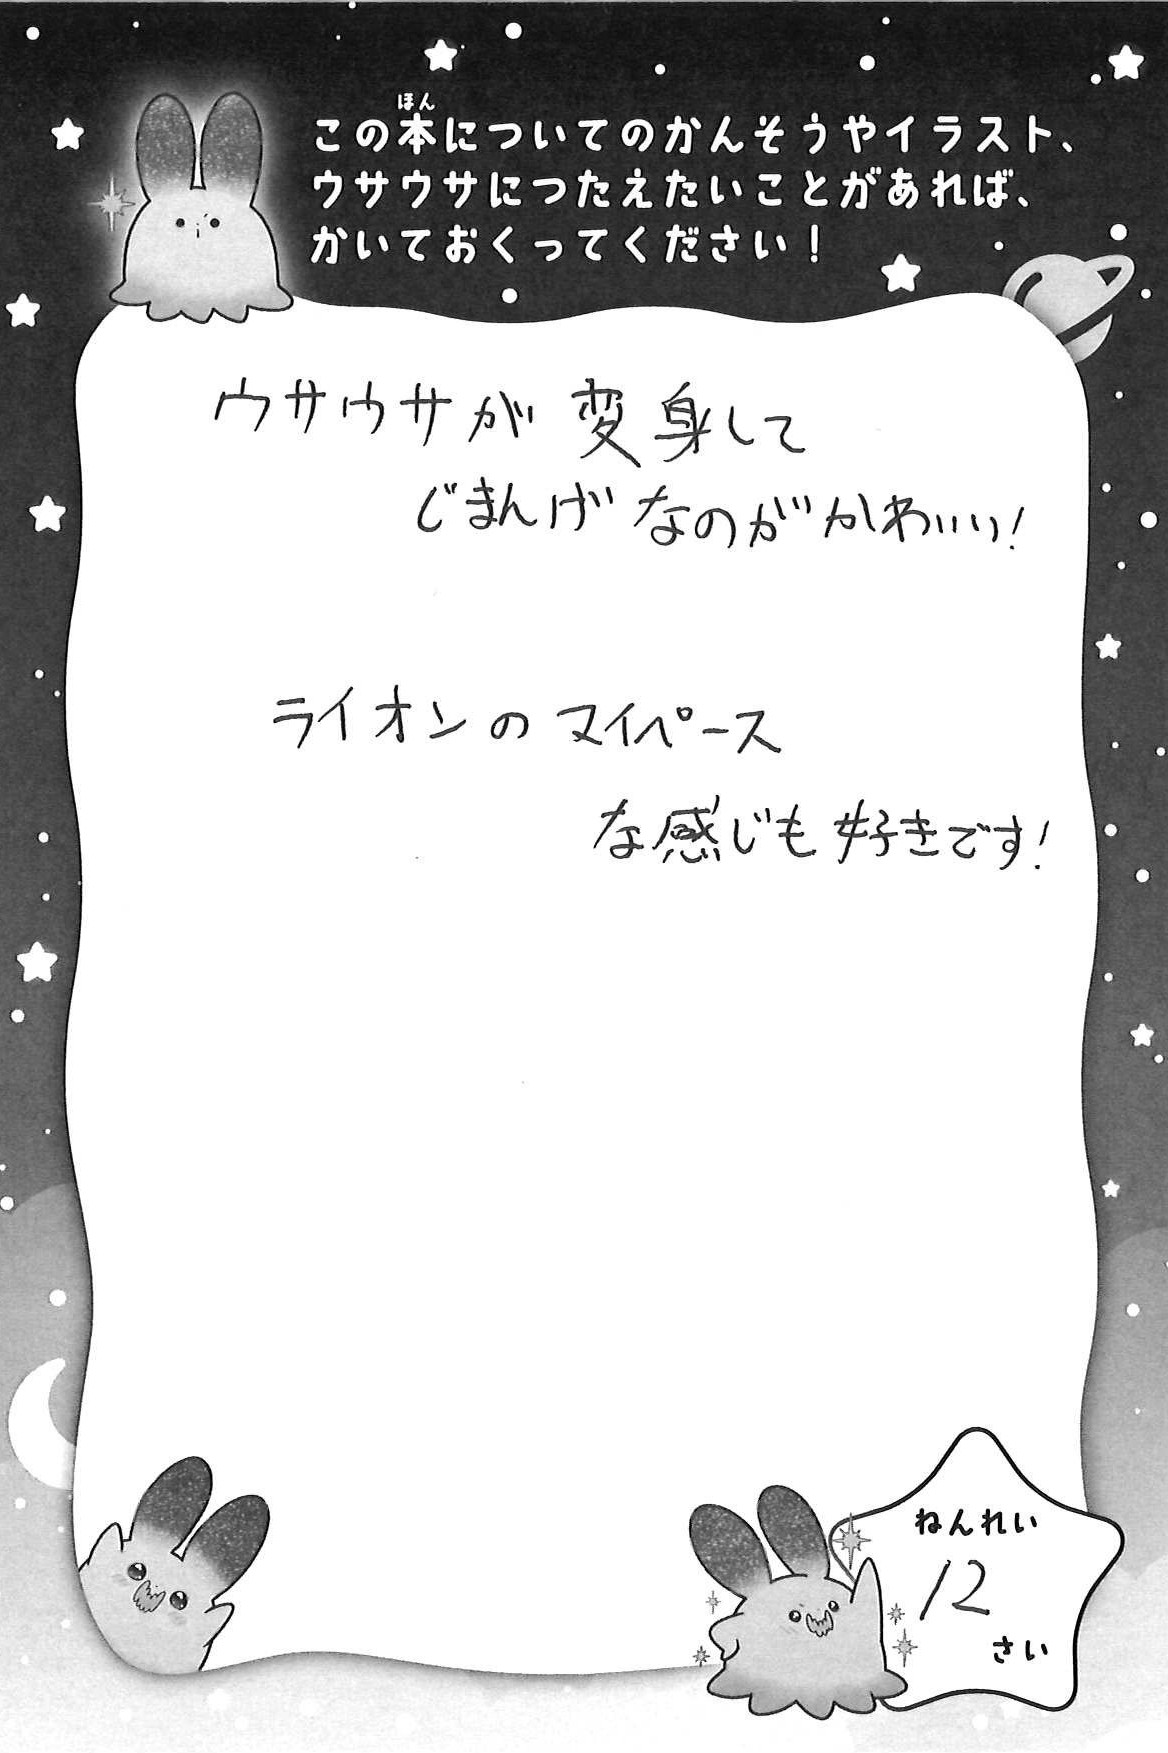 ほん
この本についてのかんそうやイラスト、
ウサウサにつたえたいことがあれば、
かいておくってください！
ウサウサが変身して
じまんげなのがかわいい！
ライオンのマイペース
な感じも好きです！
ねんれい
12
さい